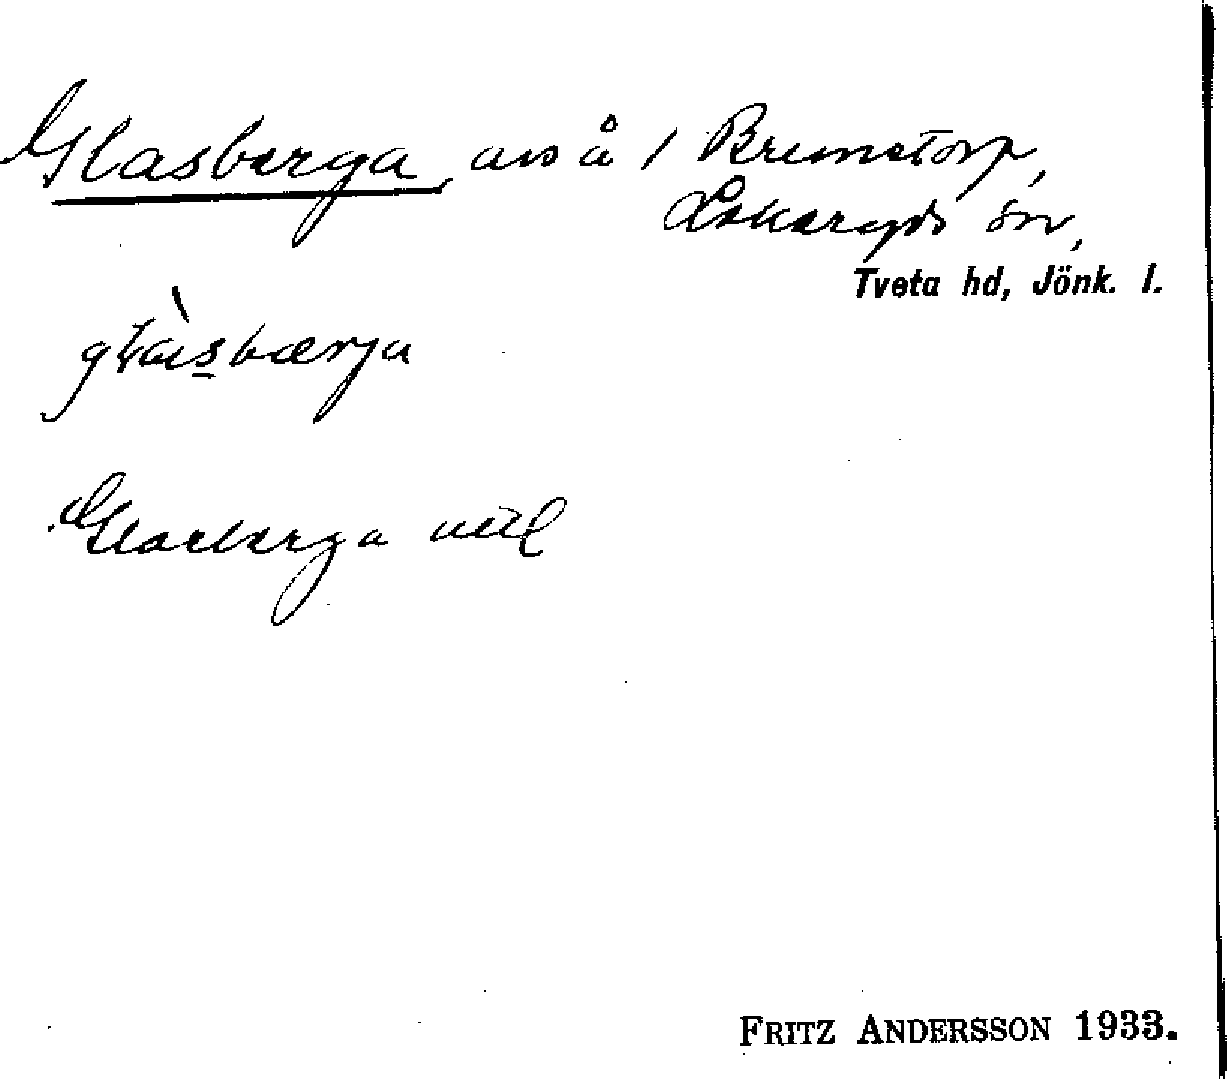 Glasberga, avs å 1 Bremstorp,
Lekeryds sn,
Tveta hd, Jönk. l.
Glasberga
FRITZ ANDERSSON 1933.